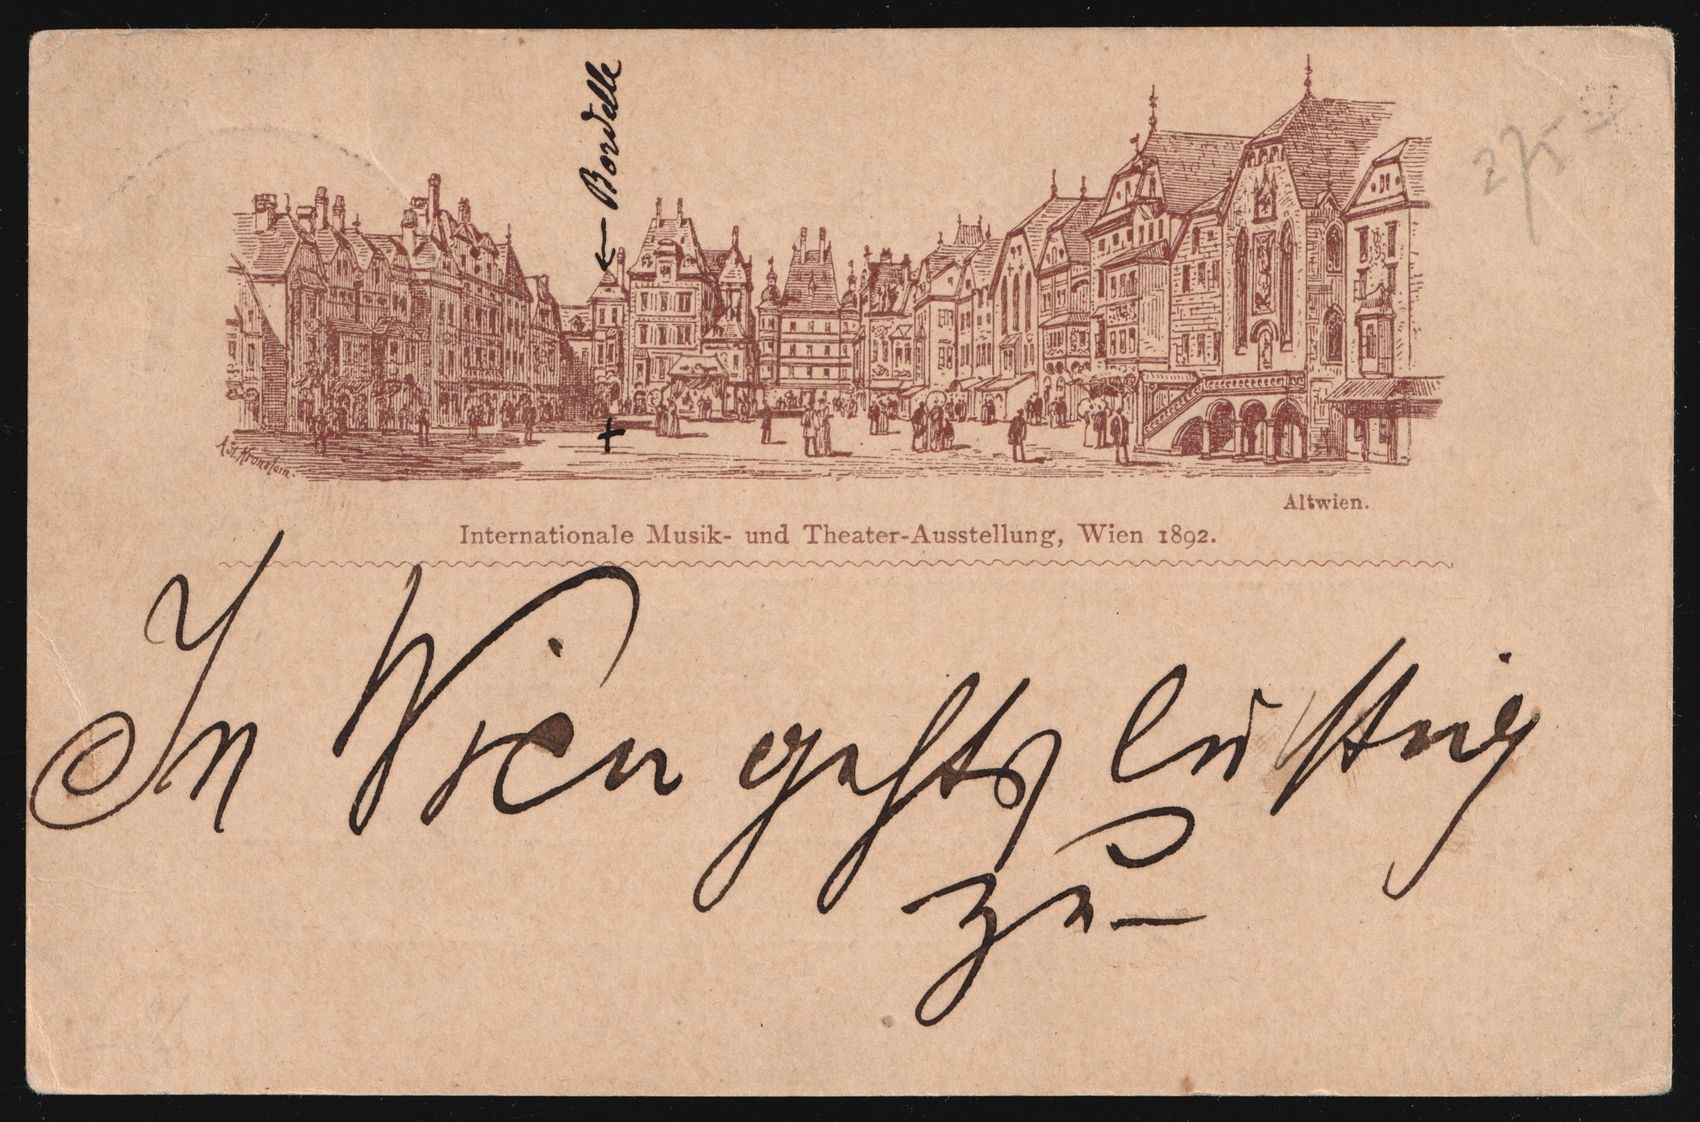 ← Bordelle
+
275
A. N. Kronstein.
Altwien.
Internationale Musik- und Theater-Ausstellung, Wien 1892.
In Wien gehts lustig
zu—